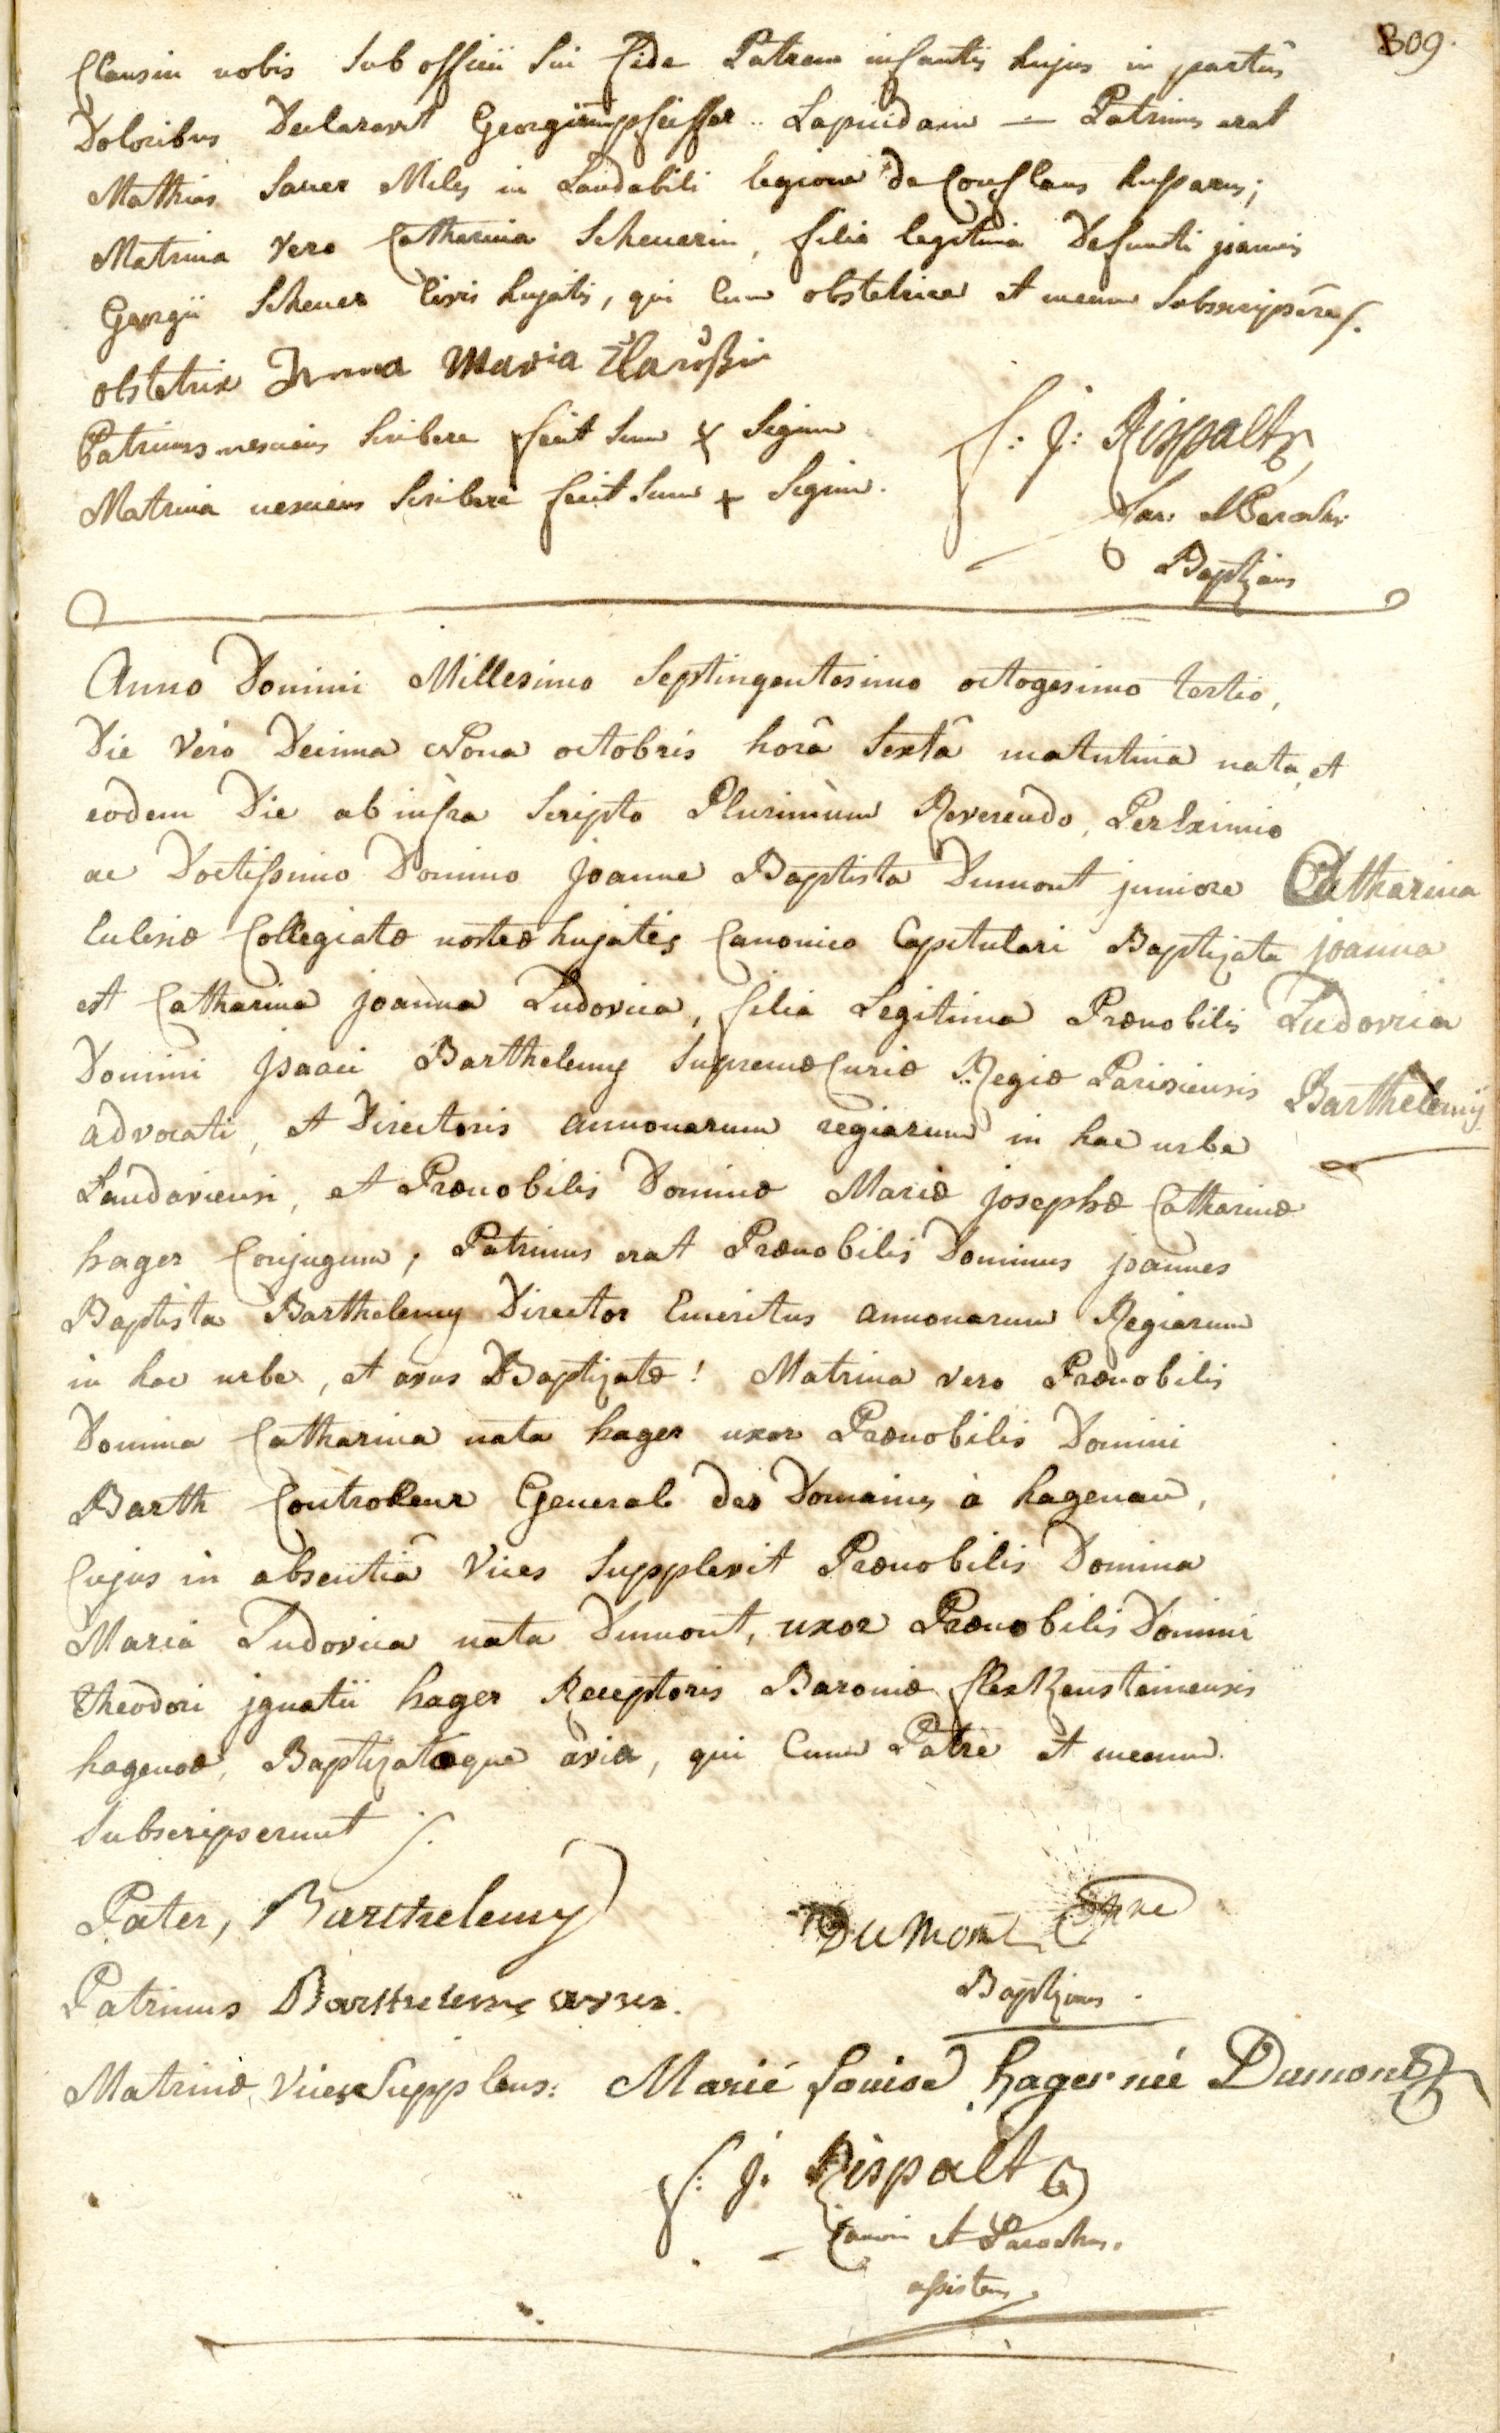 309.
Clausin nobis sub officii sui fide Patrem infantis hujus in partûs
Doloribus Declaravit Georgium pfeiffer .. Lapicidam — Patrinus erat
Mathias Sauer Miles in Laudabili legione de Conflans hussarus;
Matrina vero Catharina Scheuerin, filia legitima Defuncti joannis
Georgii Scheuer Civis hujatis, qui Cum obstetrice et mecum subscripsêre/.
obstetrix Anna Maria
Patrinus nesciens Scribere fecit suum x Signum
Matrina nesciens Scribere fecit suum + Signum.
f: j: Rispalt
Can. et Parochus
Baptizans
Anno Domini Millesimo Septingentesimo octogesimo tertio,
Die Vero Decima Nona octobris horâ Sextâ matutina nata, et
eodem Die ab infra Scripto Plurimùm Reverendo, PerEximio
ac Doctissimo Domino Joanne Baptista Dumont juniore
Eclesiæ Collegiatæ nostræ hujatis Canonico Capitulari Baptizata
est Catharina joanna Ludovica, filia Legitima Prænobilis
Domini Jsaaci Barthelemy Supremæ Curiæ Regiæ Parisiensis
advocati, et Directoris annonarum regiarum in hac urbe
Landaviensi, et Prænobilis Dominæ Mariæ josephæ Catharinæ
hager Conjugum, Patrinus erat Prænobilis Dominus joannes
Baptista Barthelemy Director Emeritus annonarum Regiarum
in hac urbe, et avus Baptizatæ! Matrina vero Prænobilis
Domina Catharina nata hager uxor Prænobilis Domini
Barth Controleur General des Domaines à hagenau,
Cujus in absentiâ Vices Supplevit Prænobilis Domina
Maria Ludovica nata Dumont, uxor Prænobilis Domini
theodori jgnatii hager Receptoris Baroniæ fleckensteinensis
hagenoæ, Baptizatæque avia, qui Cum Patre et mecum
Subscripserunt /.
Catharina
joanna
Ludovica
Barthelemÿ
Pater, Barthelemy
Dumont
Baptizans.
Patrinus Barthelemy
Matrinæ Vices Supplens: Marie Louise hager née Dumont
f: j: Rispalt
Canon et Parochus.
assistens.